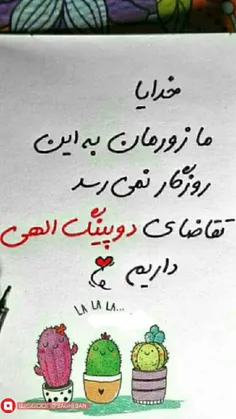 خدایا
ما زورمان به این
روزگار نمی رسد
تقاضای دوپینگ الهی
داریم
LA LA LA...